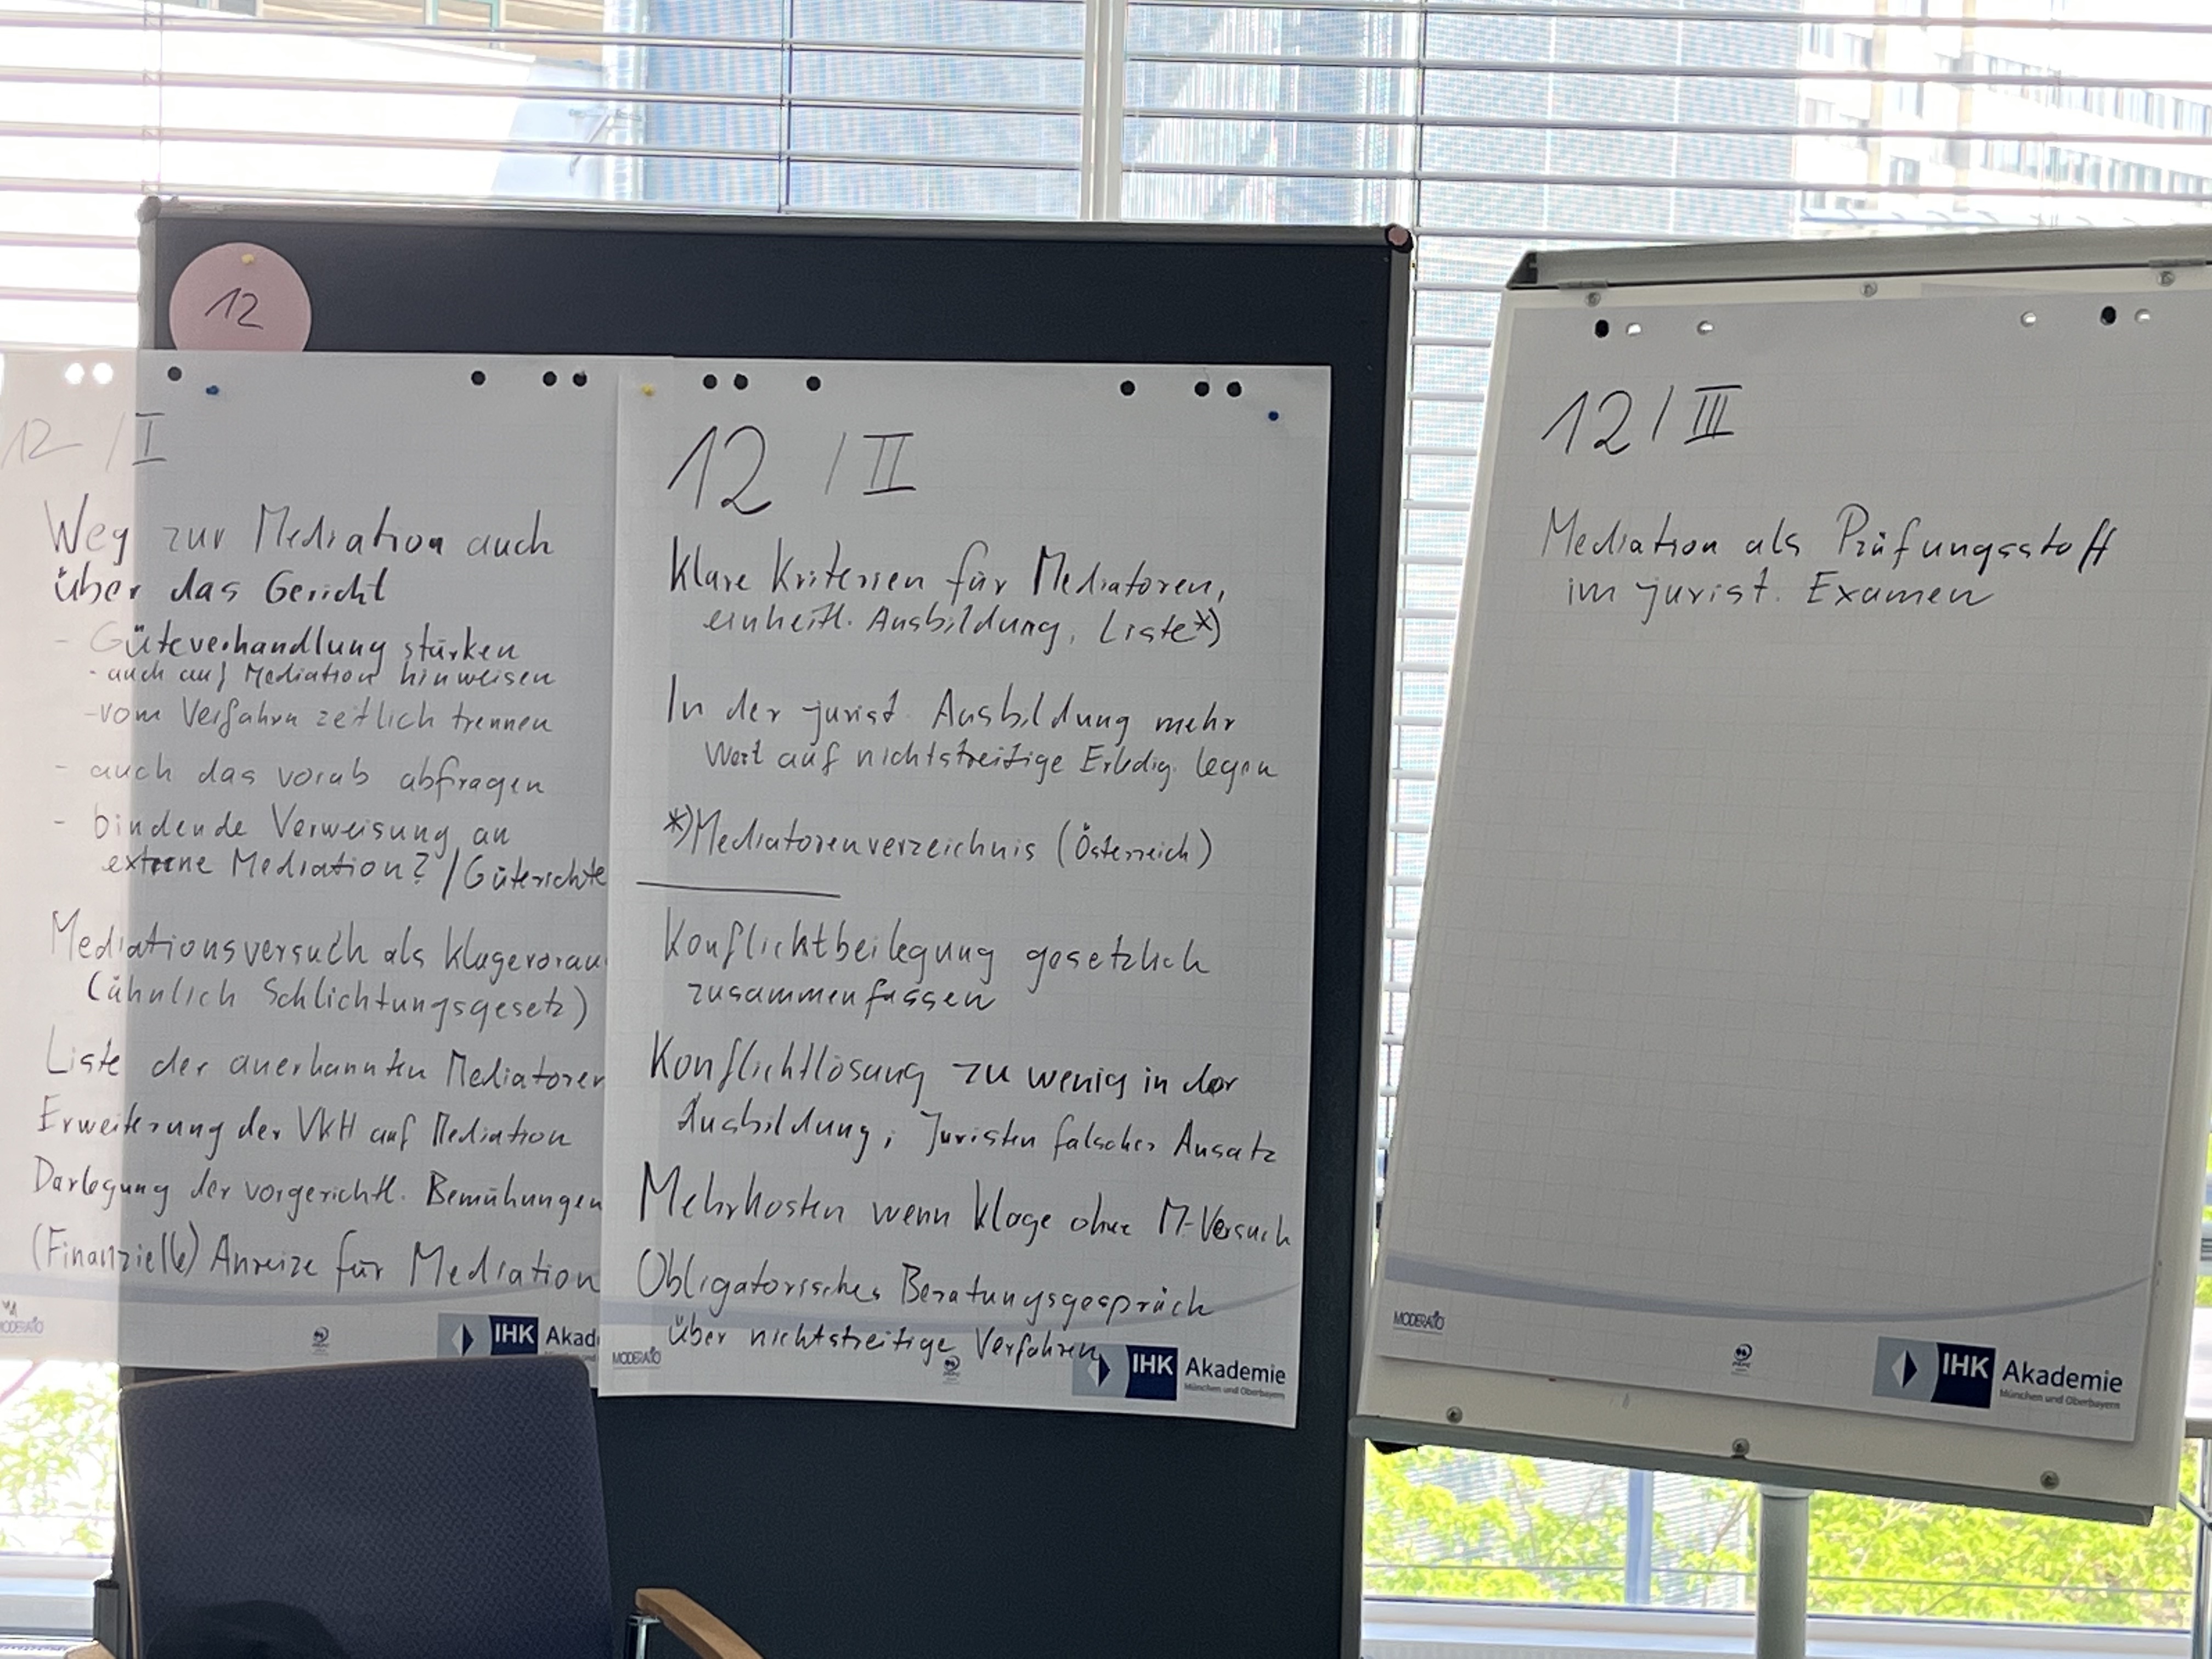 12
12 / I
Weg zur Mediation auch
über das Gericht
- Güteverhandlung stärken
- auch auf Mediation hinweisen
- vom Verfahren zeitlich trennen
- auch das vorab abfragen
- bindende Verweisung an
externe Mediation? / Güterichte
Mediationsversuch als Klagevorau
(ähnlich Schlichtungsgesetz)
Liste der anerkannten Mediatoren
Erweiterung der VKH auf Mediation
Darlegung der vorgerichtl. Bemühungen
(Finanzielle) Anreize für Mediation
MODERATIO
IHK Akad
12 / II
Klare Kriterien für Mediatoren,
einheitl. Ausbildung, Liste*)
In der jurist. Ausbildung mehr
Wert auf nichtstreitige Erledig. legen
*) Mediatorenverzeichnis (Österreich)
Konfliktbeilegung gesetzlich
zusammenfassen
Konfliktlösung zu wenig in der
Ausbildung; Juristen falscher Ansatz
Mehrkosten wenn Klage ohne M-Versuch
Obligatorisches Beratungsgespräch
über nichtstreitige Verfahren
MODERATIO
IHK Akademie
München und Oberbayern
12 / III
Mediation als Prüfungsstoff
im jurist. Examen
MODERATIO
IHK Akademie
München und Oberbayern